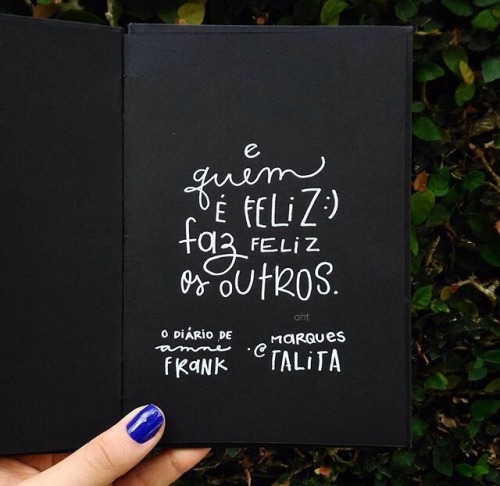 e
quem
É FELiZ:)
faz FELIZ
os OUTROS.
oht
O DIÁRIO DE
anne
FRANK
.@MARQUES
TALITA